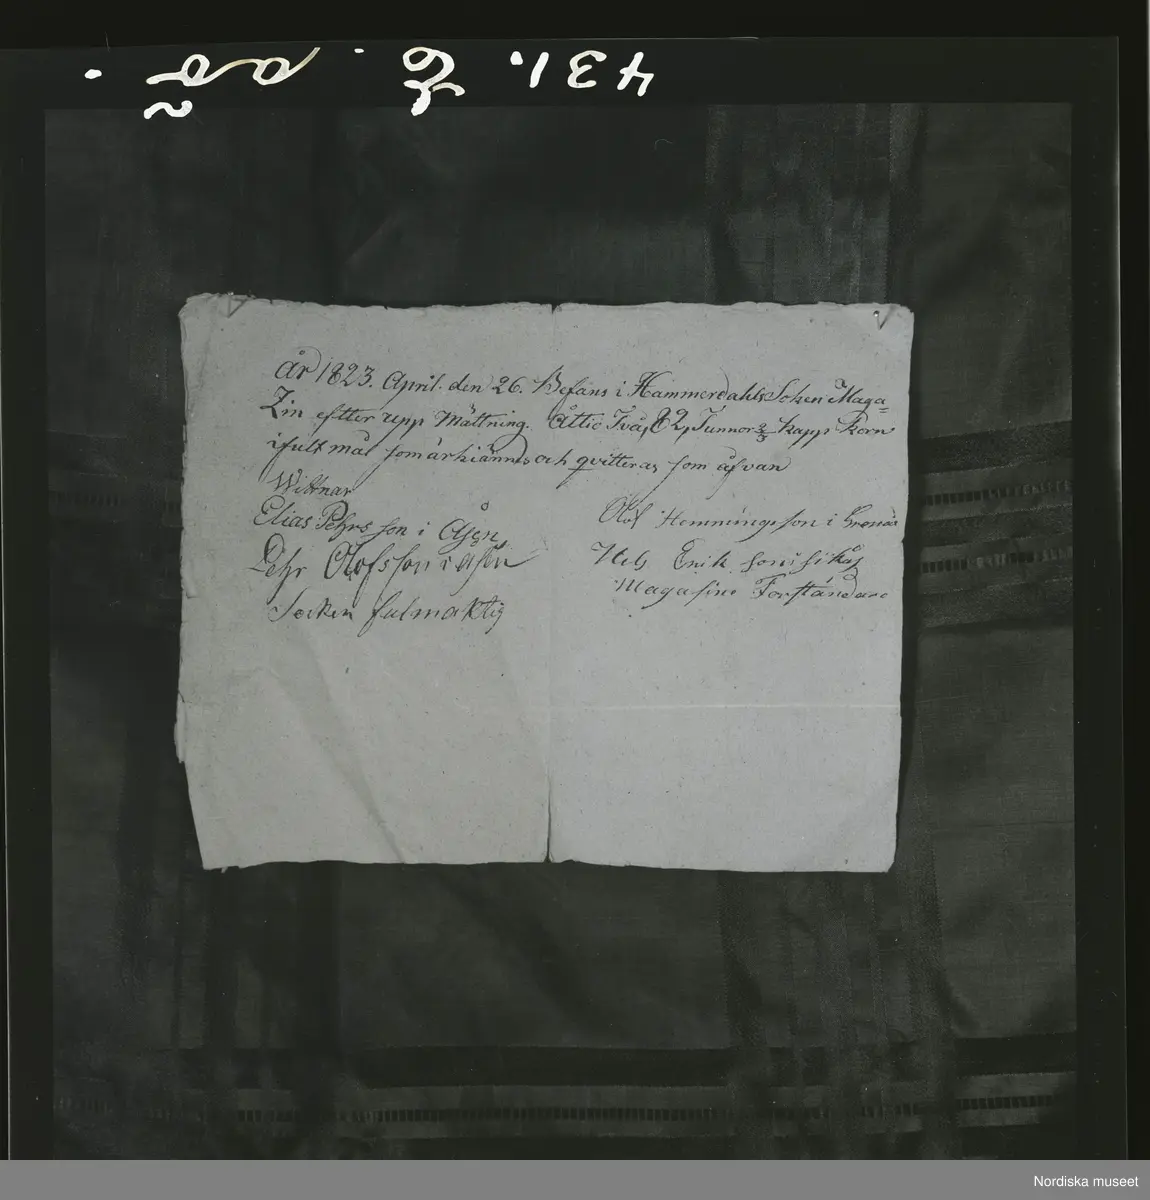 431. E. aõ.
år 1823. April. den 26. Befans i Hammerdahls Soken Maga=
Zin eftter upp Mättning. Åttio Två, 82, Tunnor 2/3 kapp korn
ifult mål som årkiännes och qvitteras som åfvan
Wittnar
Elias Pehrs son i Åsen
Pehr Olofsson i åsen
Socken fulmaktig
Olof Hemmingsson i Grenås
Nels Erik son i sikås
Magasins Forståndare
Nordiska museet